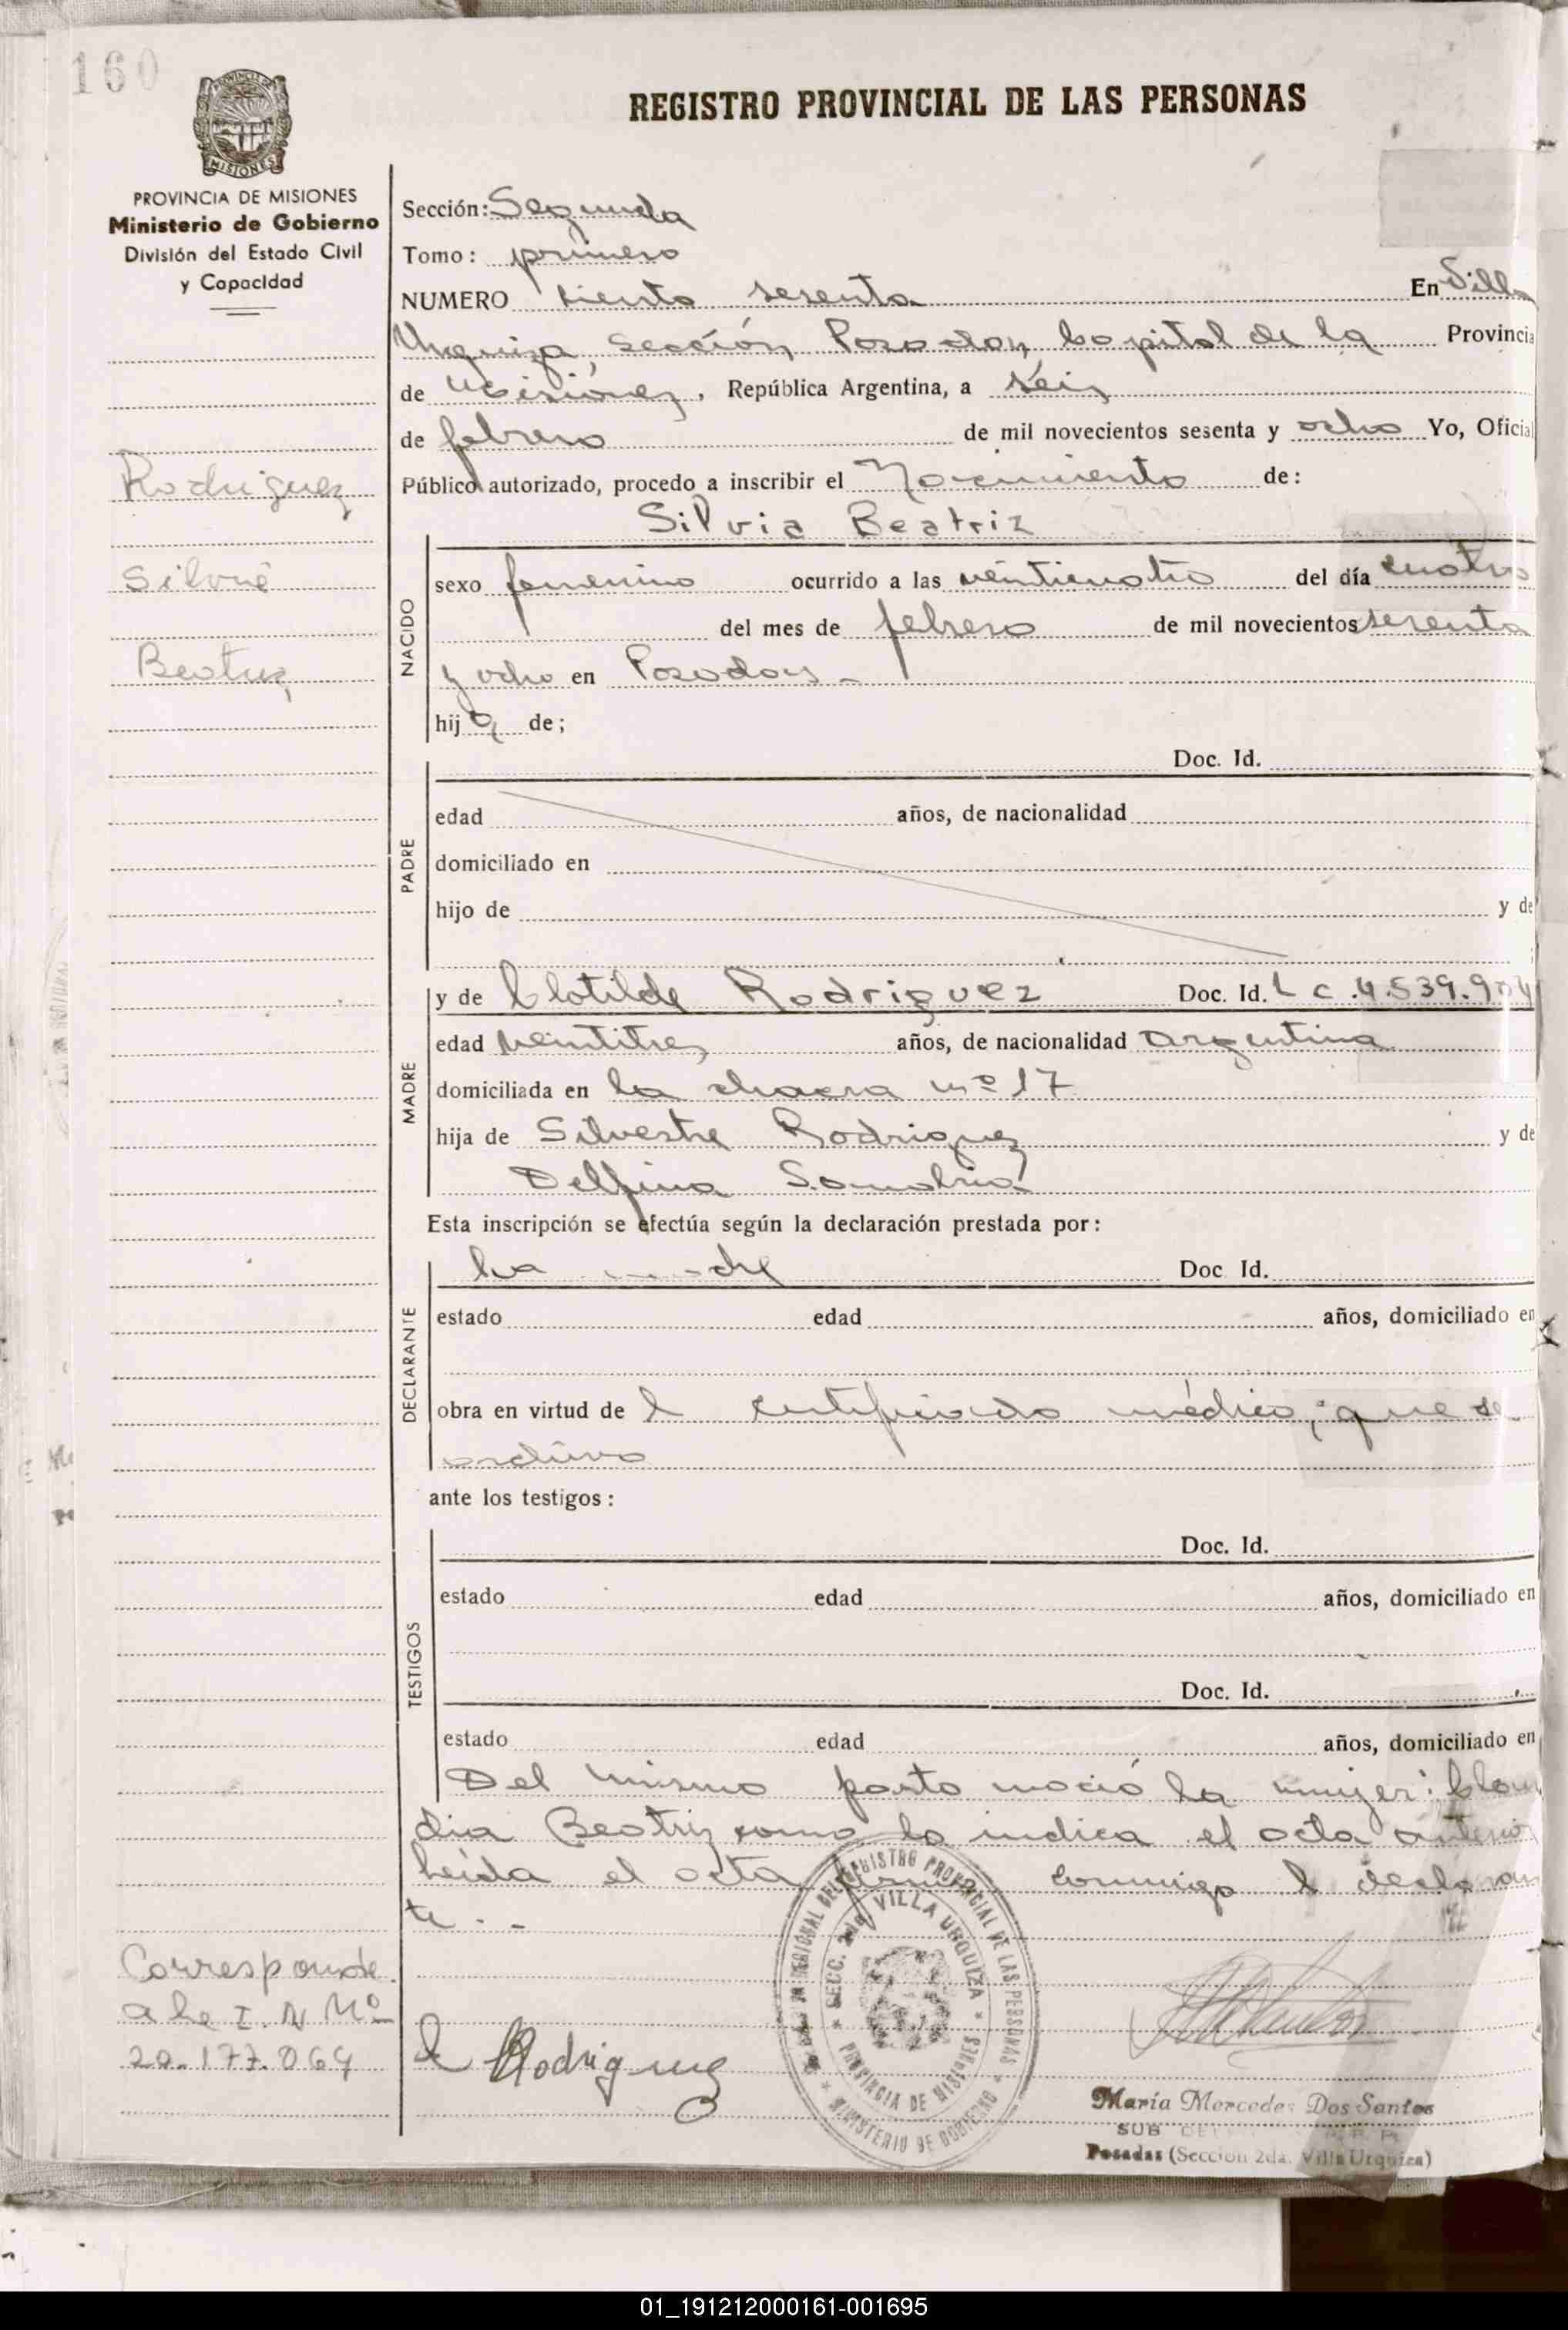 160
REGISTRO PROVINCIAL DE LAS PERSONAS
MISIONES
PROVINCIA DE MISIONES
Ministerio de Gobierno
División del Estado Civil
y Capacidad
Sección: Segunda
Tomo: primero
NUMERO ciento sesenta En Villa
Urquiza, Sección Posadas, Capital de la Provincia
de Misiones, República Argentina, a seis
de febrero de mil novecientos sesenta y ocho Yo, Oficial
Público autorizado, procedo a inscribir el Nacimiento de:
Rodriguez
Silvia
Beatriz
NACIDO
Silvia Beatriz
sexo femenino ocurrido a las veinticuatro del día cuatro
del mes de febrero de mil novecientos sesenta
y ocho en Posadas -
hija de;
PADRE
Doc. Id.
edad años, de nacionalidad
domiciliado en
hijo de y de
MADRE
y de Clotilde Rodriguez Doc. Id. L C .4.539.904
edad veintitres años, de nacionalidad argentina
domiciliada en la chacra nº 17
hija de Silvestre Rodriguez y de
Delfina
Esta inscripción se efectúa según la declaración prestada por:
DECLARANTE
La madre Doc. Id.
estado edad años, domiciliado en
obra en virtud del certificado médico, que se
archiva
ante los testigos:
TESTIGOS
Doc. Id.
estado edad años, domiciliado en
Doc. Id.
estado edad años, domiciliado en
Del mismo parto nació la mujer: Clau
dia Beatriz como lo indica el acta anterior
Leída el acta firma conmigo la declaran
te. -
Corresponde
a la I. N Nº
20.177.064
C Rodriguez
REGISTRO PROVINCIAL DE LAS PERSONAS
SECC. 2da VILLA URQUIZA
PROVINCIA DE MISIONES
MINISTERIO DE GOBIERNO
María Mercedes Dos Santos
SUB
Posadas (Sección 2da. Villa Urquiza)
01_191212000161-001695